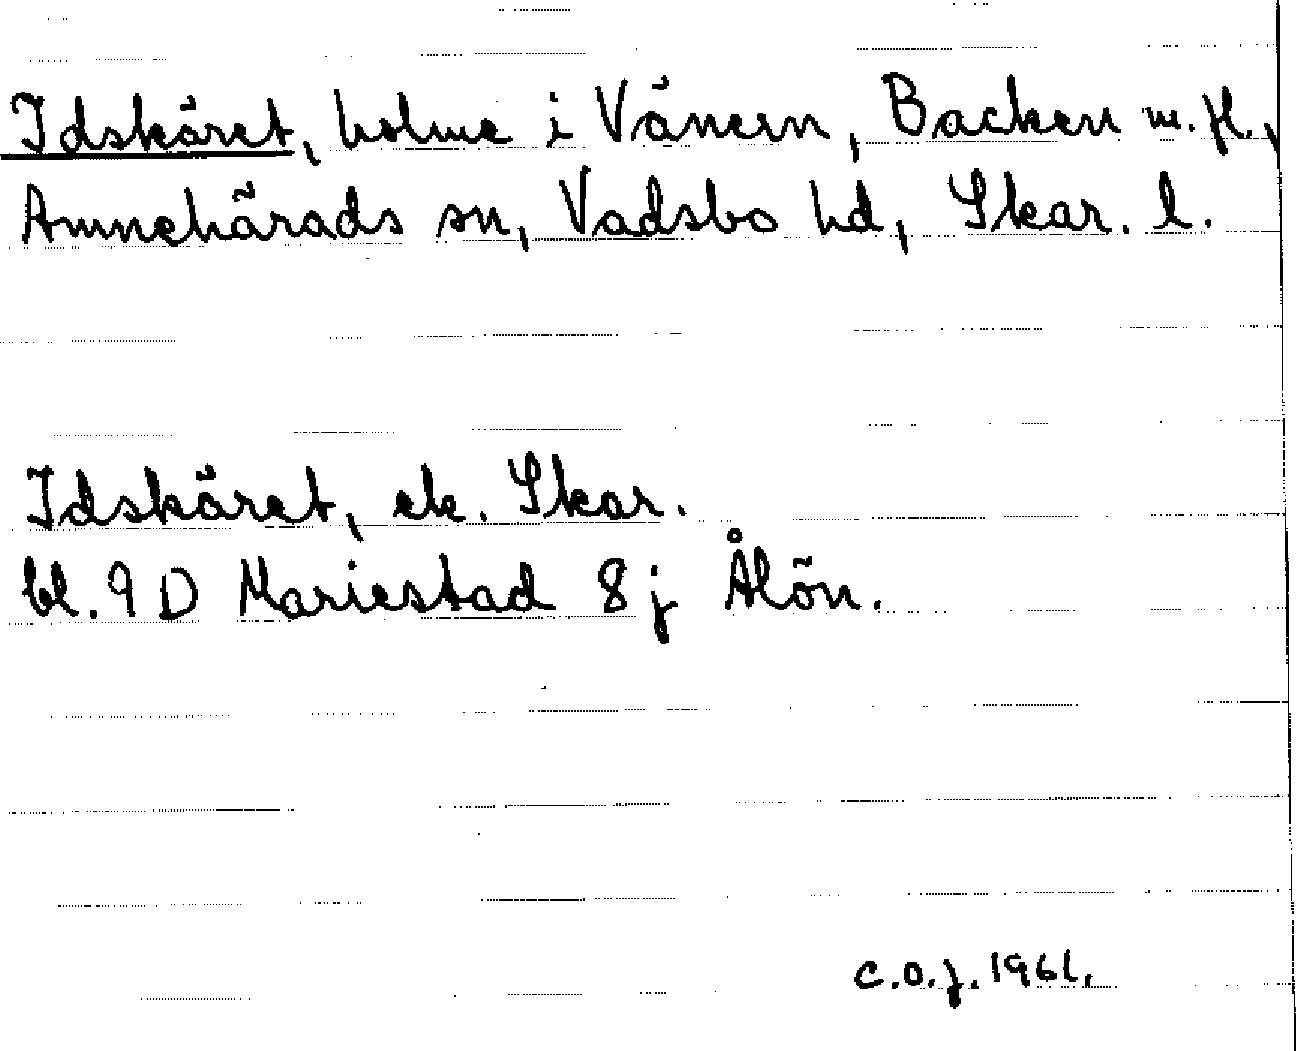 Idskäret, holme i Vänern, Backen m. fl.,
Amnehärads sn, Vadsbo hd, Skar. l.
Idskäret, ek. Skar.
bl. 9 D Mariestad 8 j Ålön.
C.O.J. 1961.